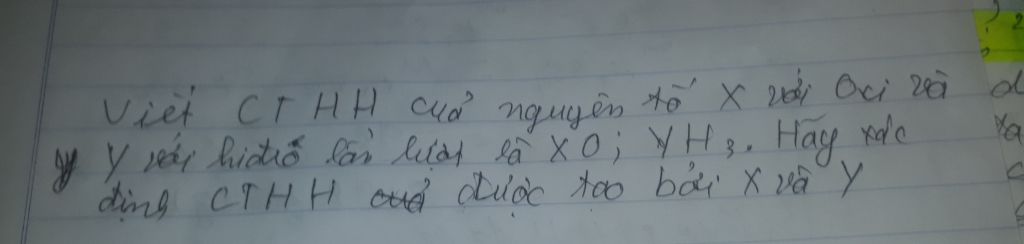 Viết CTHH của nguyên tố X với Oxi và
Y với hidro lần lượt là XO; YH₃. Hãy xác
định CTHH được tạo bởi X và Y